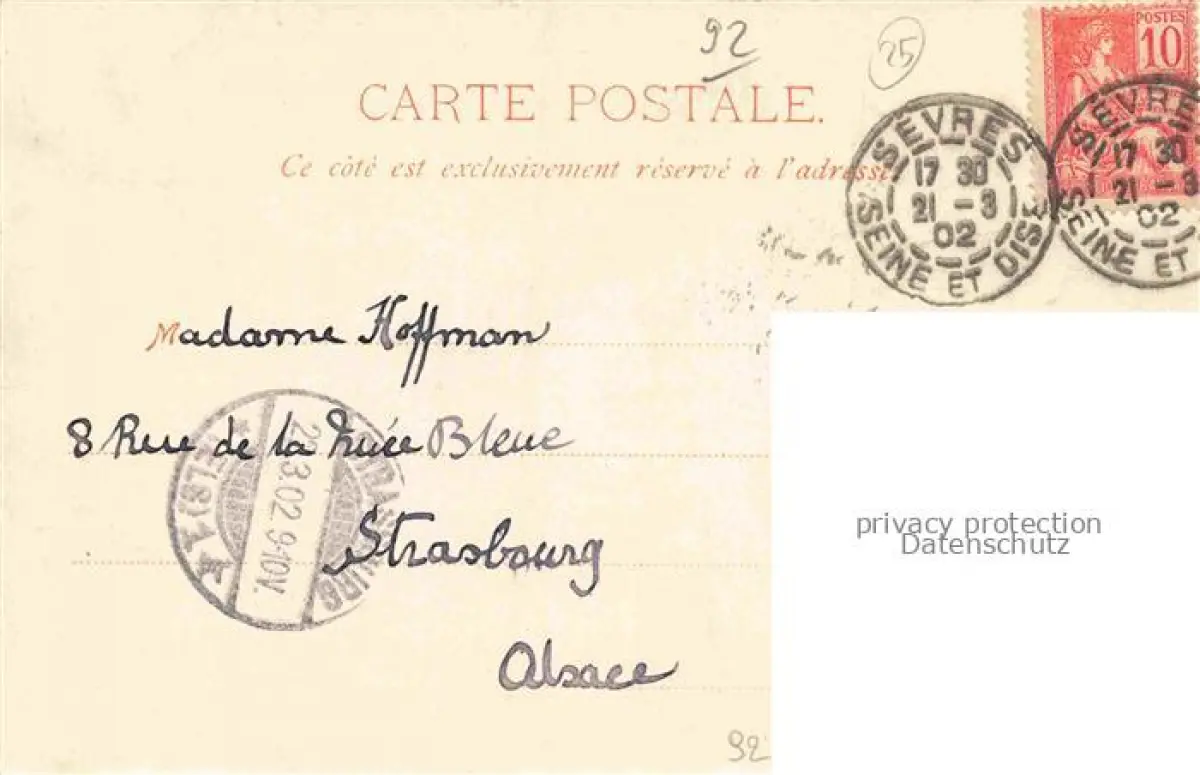 92
25
CARTE POSTALE.
Ce côté est exclusivement réservé à l'adresse.
POSTES
10
SÈVRES
17 30
21 - 3
02
SEINE ET OISE
SÈVRE
17 30
21 - 3
02
SEINE ET
Madame Hoffman
8 Rue de la Nuée Bleue
Strasbourg
Alsace
STRASSBURG
3.02 9-10V.
(ELS) 1
privacy protection
Datenschutz
92